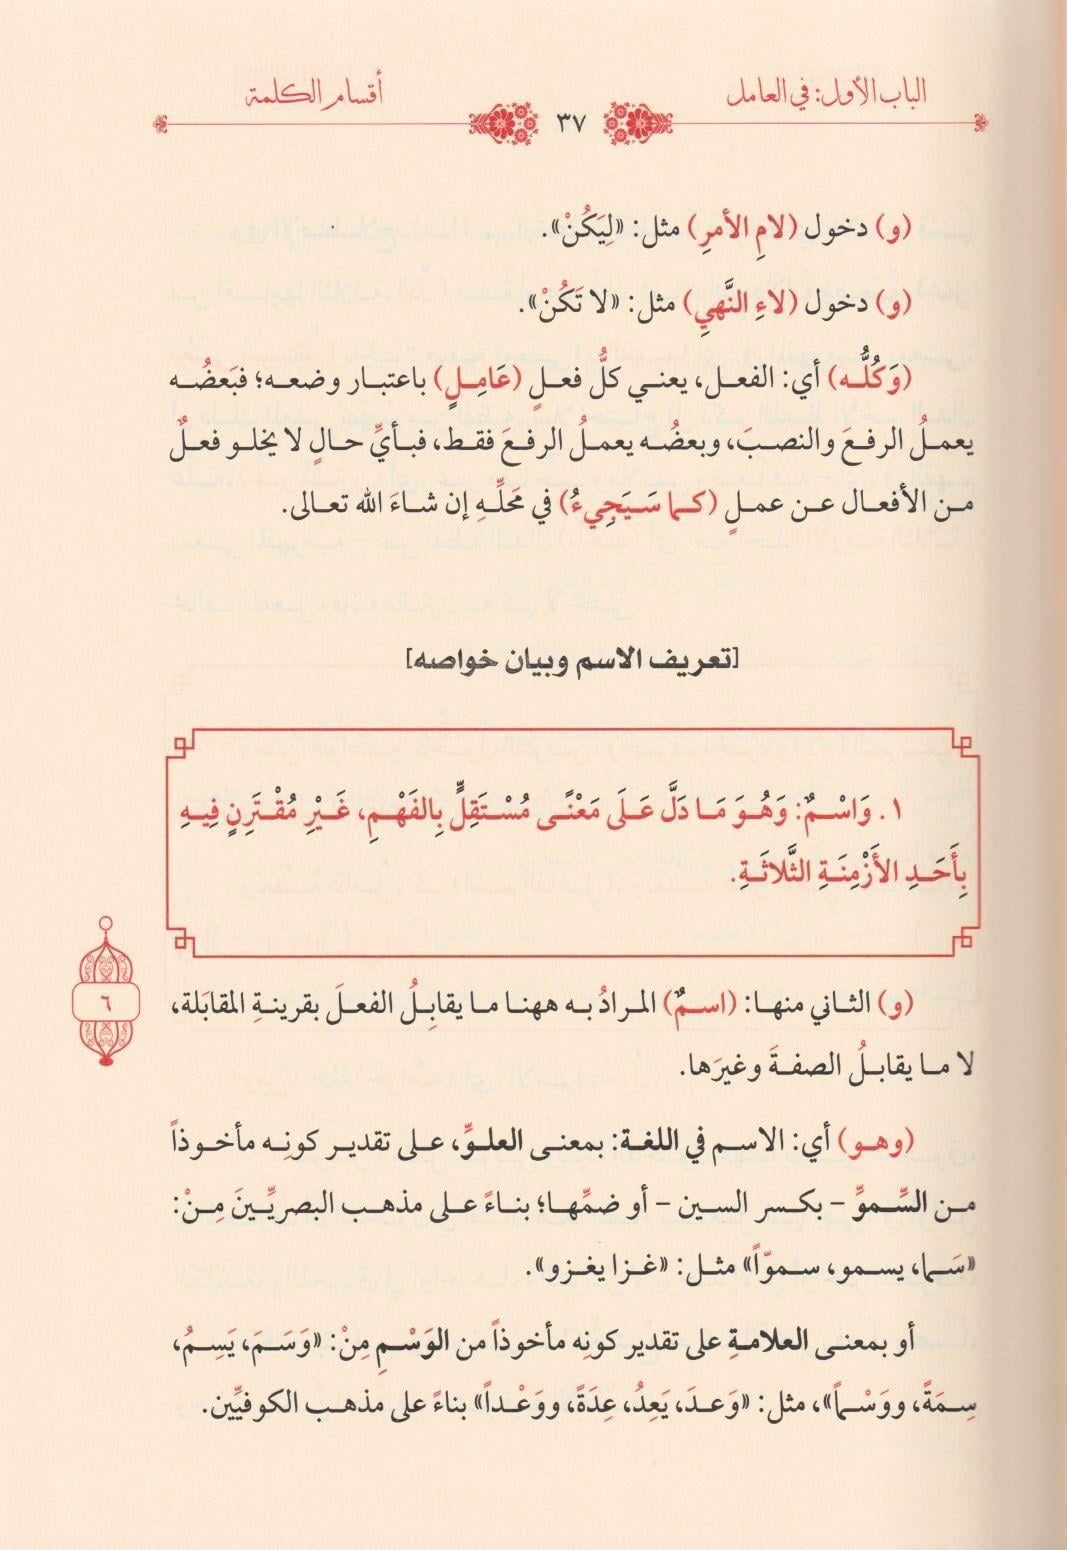 الباب الأول: في العامل
٣٧
أقسام الكلمة
(و) دخول (لامِ الأمرِ) مثل: «لِيَكُنْ».
(و) دخول (لاءِ النَّهيِ) مثل: «لا تَكُنْ».
(وَكُلُّه) أي: الفعل، يعني كلُّ فعلٍ (عَامِلٍ) باعتبار وضعه؛ فبَعضُه
يعملُ الرفعَ والنصبَ، وبعضُه يعملُ الرفعَ فقط، فبأيِّ حالٍ لا يخلو فعلٌ
من الأفعال عن عملٍ (كما سَيَجِيءُ) في مَحَلِّهِ إن شاءَ الله تعالى.
[تعريف الاسم وبيان خواصه]
١. وَاسْمٌ: وَهُوَ مَا دَلَّ عَلَى مَعْنًى مُسْتَقِلٍّ بِالفَهْمِ، غَيْرِ مُقْتَرِنٍ فِيهِ
بِأَحَدِ الأَزْمِنَةِ الثَّلاثَةِ.
٦
(و) الثاني منها: (اسمٌ) المرادُ به ههنا ما يقابِلُ الفعلَ بقرينةِ المقابَلة،
لا ما يقابلُ الصفةَ وغيرَها.
(وهو) أي: الاسم في اللغة: بمعنى العلوِّ، على تقدير كونِه مأخوذاً
من السِّموِّ - بكسر السين - أو ضمِّها؛ بناءً على مذهب البصريِّينَ مِنْ:
«سَما، يسمو، سموّاً» مثل: «غزا يغزو».
أو بمعنى العلامةِ على تقدير كونِه مأخوذاً من الوَسْمِ مِنْ: «وَسَمَ، يَسِمُ،
سِمَةً، ووَسْماً»، مثل: «وَعدَ، يَعِدُ، عِدَةً، ووَعْداً» بناءً على مذهب الكوفيِّين.